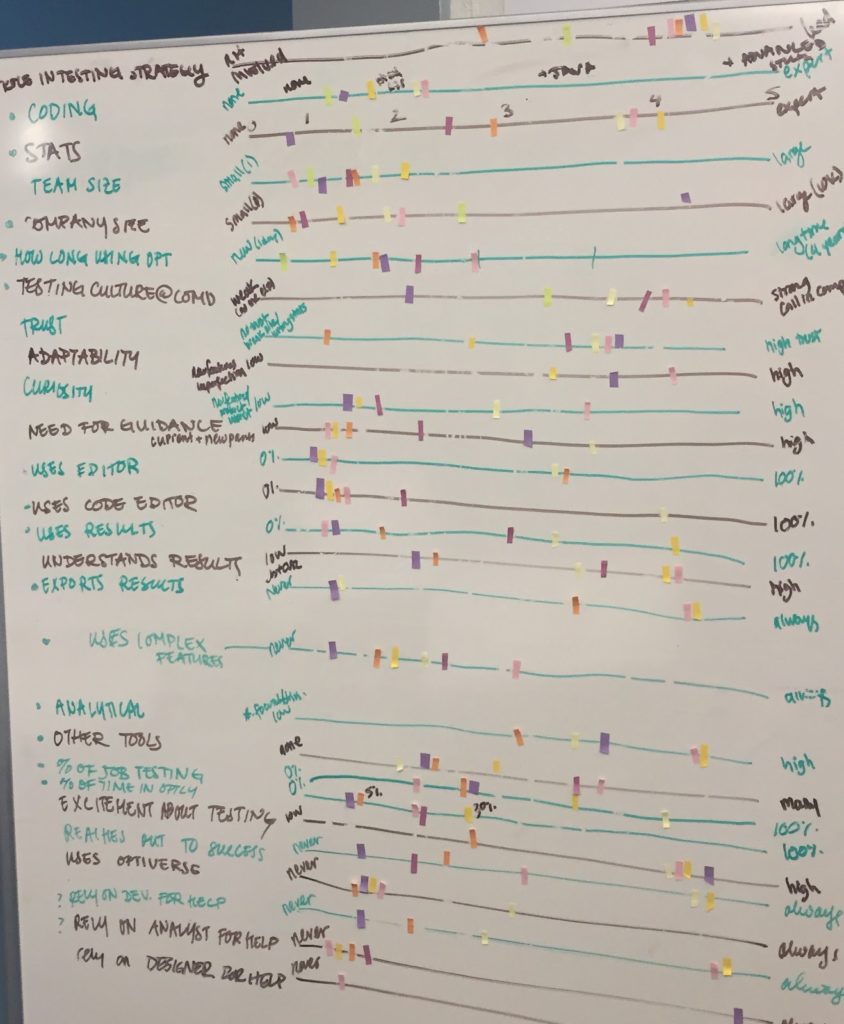 ROLE IN TESTING STRATEGY
involved
• CODING none none + JAVA + ADVANCED expert
1 2 3 4 5
• STATS none expert
TEAM SIZE small(1) large
• COMPANY SIZE small(8)
• HOW LONG USING OPT new (1day) long time
• TESTING CULTURE@COMP weak strong
TRUST high trust
ADAPTABILITY low high
CURIOSITY low high
NEED FOR GUIDANCE low high
current + new
• USES EDITOR 0% 100%
• USES CODE EDITOR 0% 100%
• USES RESULTS 0% 100%
UNDERSTANDS RESULTS low high
• EXPORTS RESULTS never always
• USES COMPLEX FEATURES never
• ANALYTICAL low high
• OTHER TOOLS none many
• % OF JOB TESTING 0% 100%
• % OF TIME IN OPTLY 0% 5% 30% 100%
EXCITEMENT ABOUT TESTING low high
REACHES OUT TO SUCCESS never always
USES OPTIVERSE never always
? RELY ON DEV. FOR HELP never always
? RELY ON ANALYST FOR HELP never
rely on DESIGNER FOR HELP never